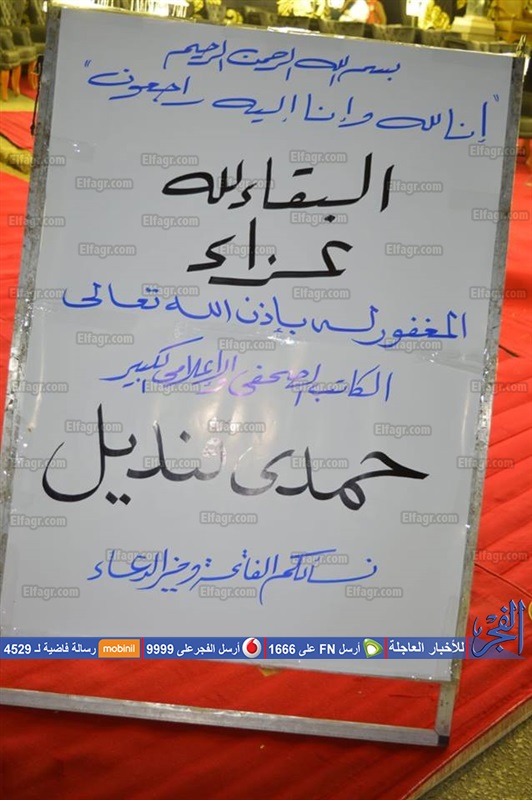 بسم الله الرحمن الرحيم
"إنا لله وإنا إليه راجعون"
البقاء لله
عزاء
المغفور له بإذن الله تعالى
الكاتب الصحفى والإعلامى الكبير
حمدى قنديل
نسألكم الفاتحة وخير الدعاء
الفجر للأخبار العاجلة أرسل FN على 1666 أرسل الفجر على 9999 mobinil رسالة فاضية لـ 4529
Elfagr.com